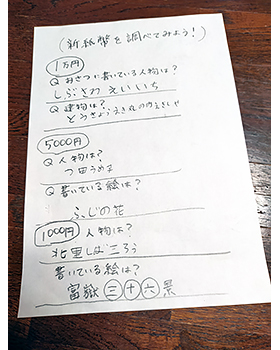 (新紙幣を調べてみよう!)
1万円
Q おさつに書いている人物は?
しぶさわ えいいち
Q 建物は?
とうきょうえき丸の内えきしゃ
5000円
Q 人物は?
つ田うめ子
Q 書いている絵は?
ふじの花
1000円 人物は?
北里しば三ろう
書いている絵は?
富嶽三十六景